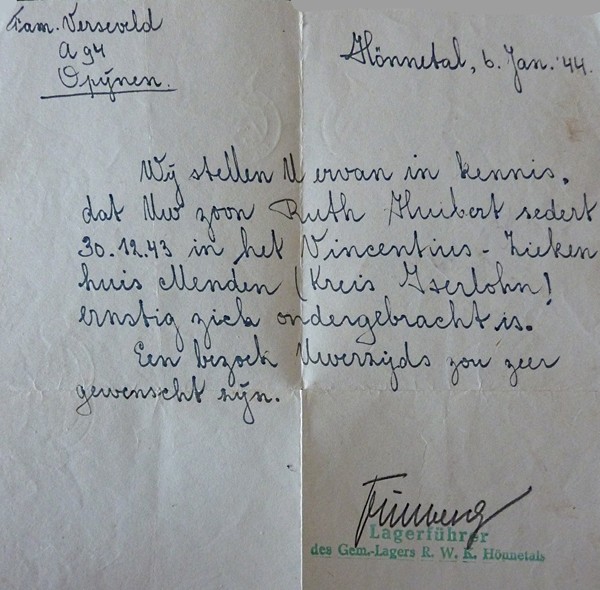 Fam. Verseveld
A 94
Opijnen.
Hönnetal, 6. Jan. '44.
Wij stellen U ervan in kennis,
dat Uw zoon Ruth Huibert sedert
30.12.43 in het Vincentius-Zieken
huis Menden (Kreis Iserlohn)
ernstig ziek ondergebracht is.
Een bezoek Uwerzijds zou zeer
gewenscht zijn.
Lagerführer
des Gem.-Lagers R. W. K. Hönnetals